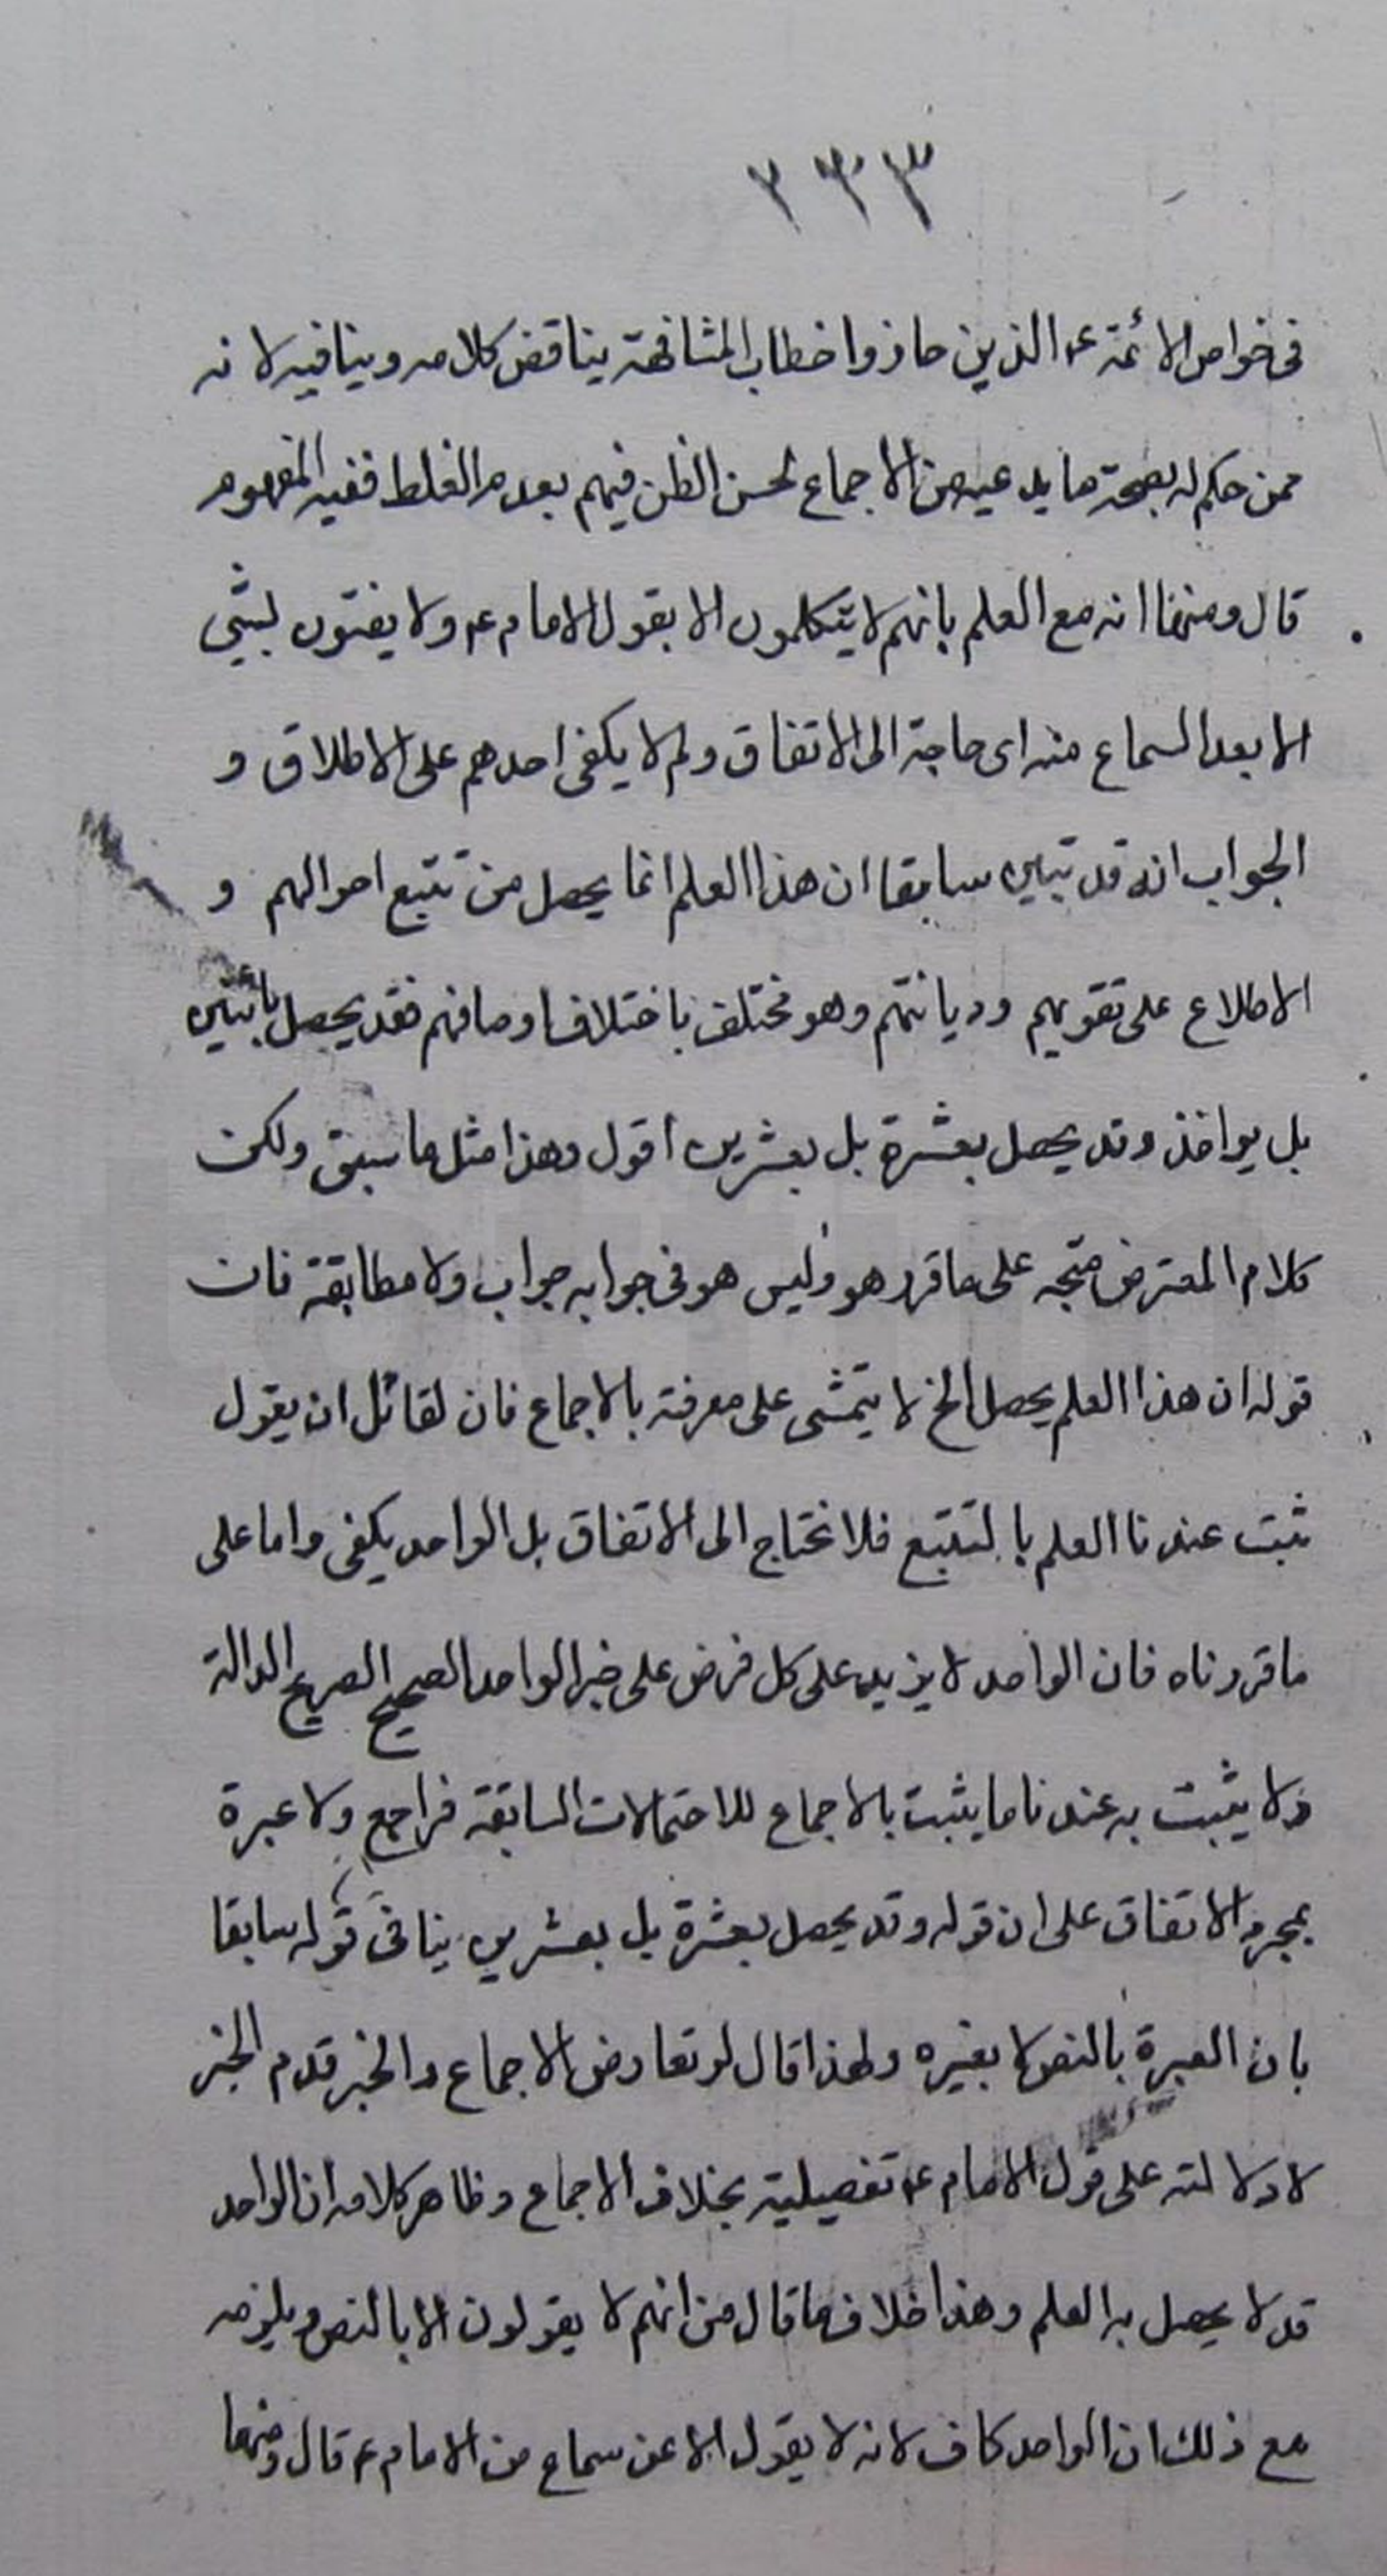 ٢٣٣
فى خواص الائمة ع الذين حازوا خطاب المشافهة يناقض كلامه وينافيه لانه
ممن حكم له بصحة ما يدعيه من الاجماع لحسن الظن فيهم بعدم الغلط ففيه المفهوم
قال ومنها انه مع العلم بانهم لا يتكلمون الا بقول الامام ع ولا يفتون بشئ
الا بعد السماع منه اى حاجة الى الاتفاق ولم لا يكفى احدهم على الاطلاق و
الجواب انه قد تبين سابقا ان هذا العلم انما يحصل من تتبع احوالهم و
الاطلاع على تقويهم وديانتهم وهو مختلف باختلاف اوصافهم فقد يحصل باثنين
بل بواحد وقد يحصل بعشرة بل بعشرين اقول وهذا مثل ما سبق ولكن
كلام المعترض متجه على ما قرر هو وليس هو فى جوابه جواب ولا مطابقة فان
قوله ان هذا العلم يحصل الخ لا يتمشى على معرفة بالاجماع فان لقائل ان يقول
ثبت عندنا العلم بالتتبع فلا نحتاج الى الاتفاق بل الواحد يكفى واما على
ما قررناه فان الواحد لا يزيد على كل فرض على خبر الواحد الصحيح الصريح الدالة
ولا يثبت به عندنا ما يثبت بالاجماع للاحتمالات السابقة فراجع ولا عبرة
بمجرد الاتفاق على ان قوله وقد يحصل بعشرة بل بعشرين ينافى قوله سابقا
بان العبرة بالنص لا بغيره ولهذا قال لو تعارض الاجماع والخبر قدم الخبر
لا دلالته على قول الامام ع تفصيلية بخلاف الاجماع وظاهر كلامه ان الواحد
قد لا يحصل به العلم وهذا خلاف ما قال من انهم لا يقولون الا بالنص ويلزمه
مع ذلك ان الواحد كاف لانه لا يقول الا عن سماع من الامام ع قال ومنها